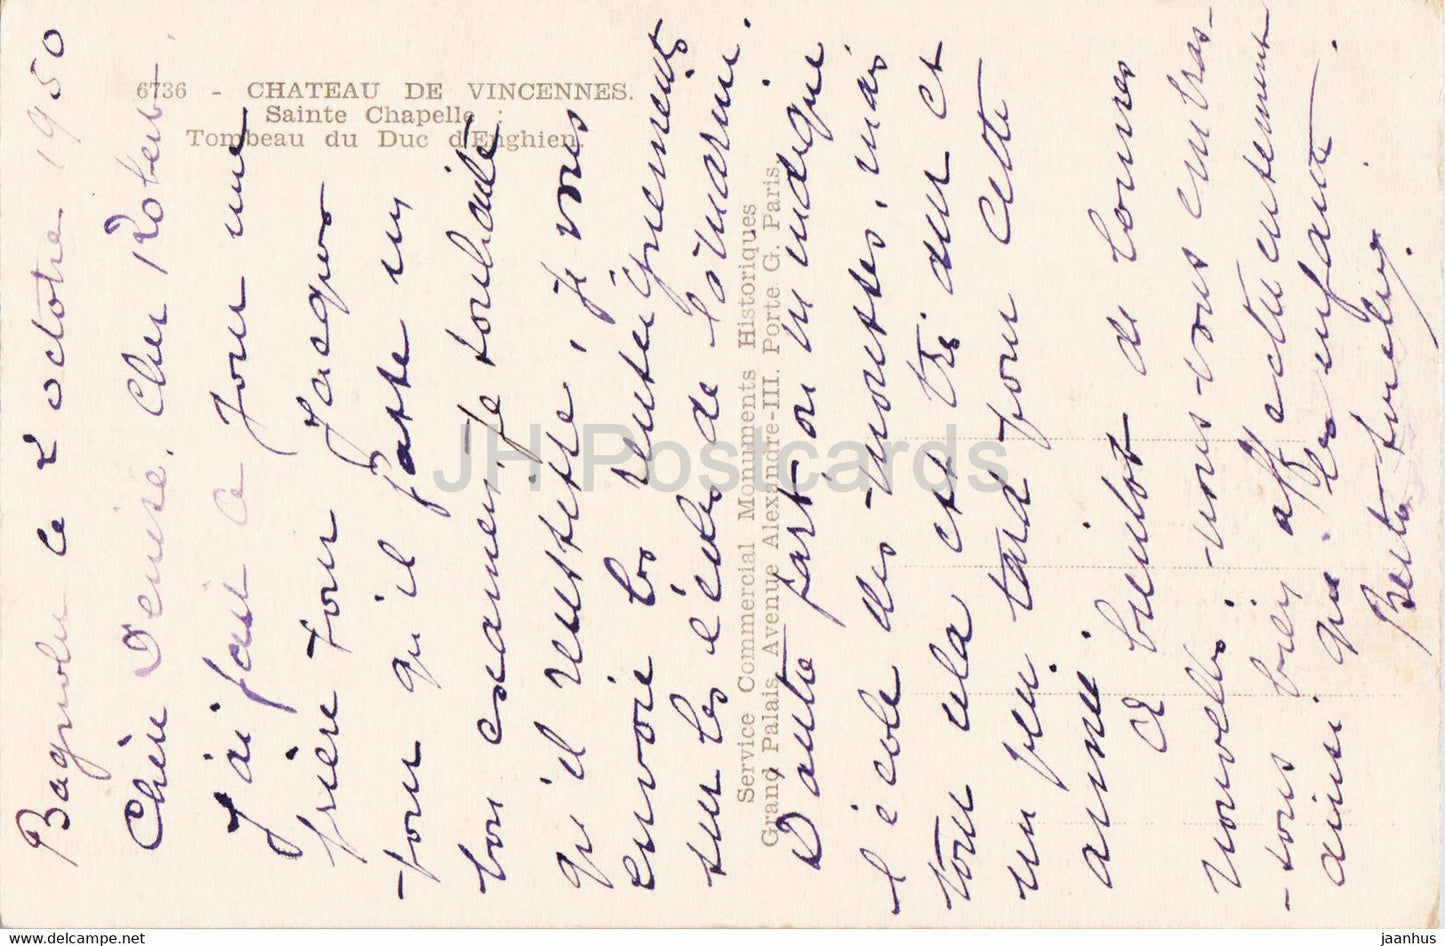 6736 - CHATEAU DE VINCENNES.
Sainte Chapelle :
Tombeau du Duc d'Enghien.
Service Commercial Monuments Historiques
Grand Palais, Avenue Alexandre-III. Porte G. Paris.
Bagnolet ce 2 octobre 1950
Chère Denise, Cher Robert
J'ai fait ce jour une
prière pour Jacques
pour qu'il passe un
bon examen, je souhaite
qu'il réussisse, je vous
envoie les renseignements
sur les écoles de la marine.
D'autre part on m'indique
l'école des mousses, mais
pour cela est très dur et
un peu tard pour cette
année
A bientôt de bonnes
nouvelles, nous vous embras-
-sons bien affectueusement
ainsi que les enfants.
JH Postcards
www.jhpostcards.com
jaanhus